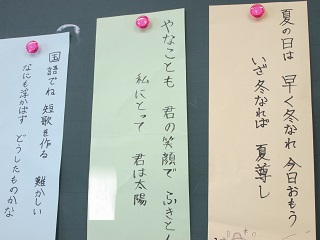 夏の日は 早く冬なれ 今日おもう
いざ冬なれば 夏尊し
やなことも 君の笑顔で ふきとん
私にとって 君は太陽
国語でね 短歌を作る 難かしい
なにも浮かばず どうしたものかな